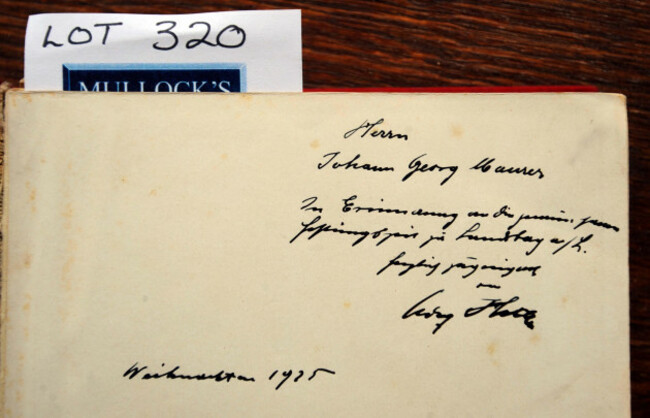 LOT 320
MULLOCK'S
Herrn
Johann Georg Maurer
In Erinnerung an die gemeinsame
Festungszeit zu Landsberg a/L.
herzlich zugeeignet
von
Adolf Hitler
Weihnachten 1925